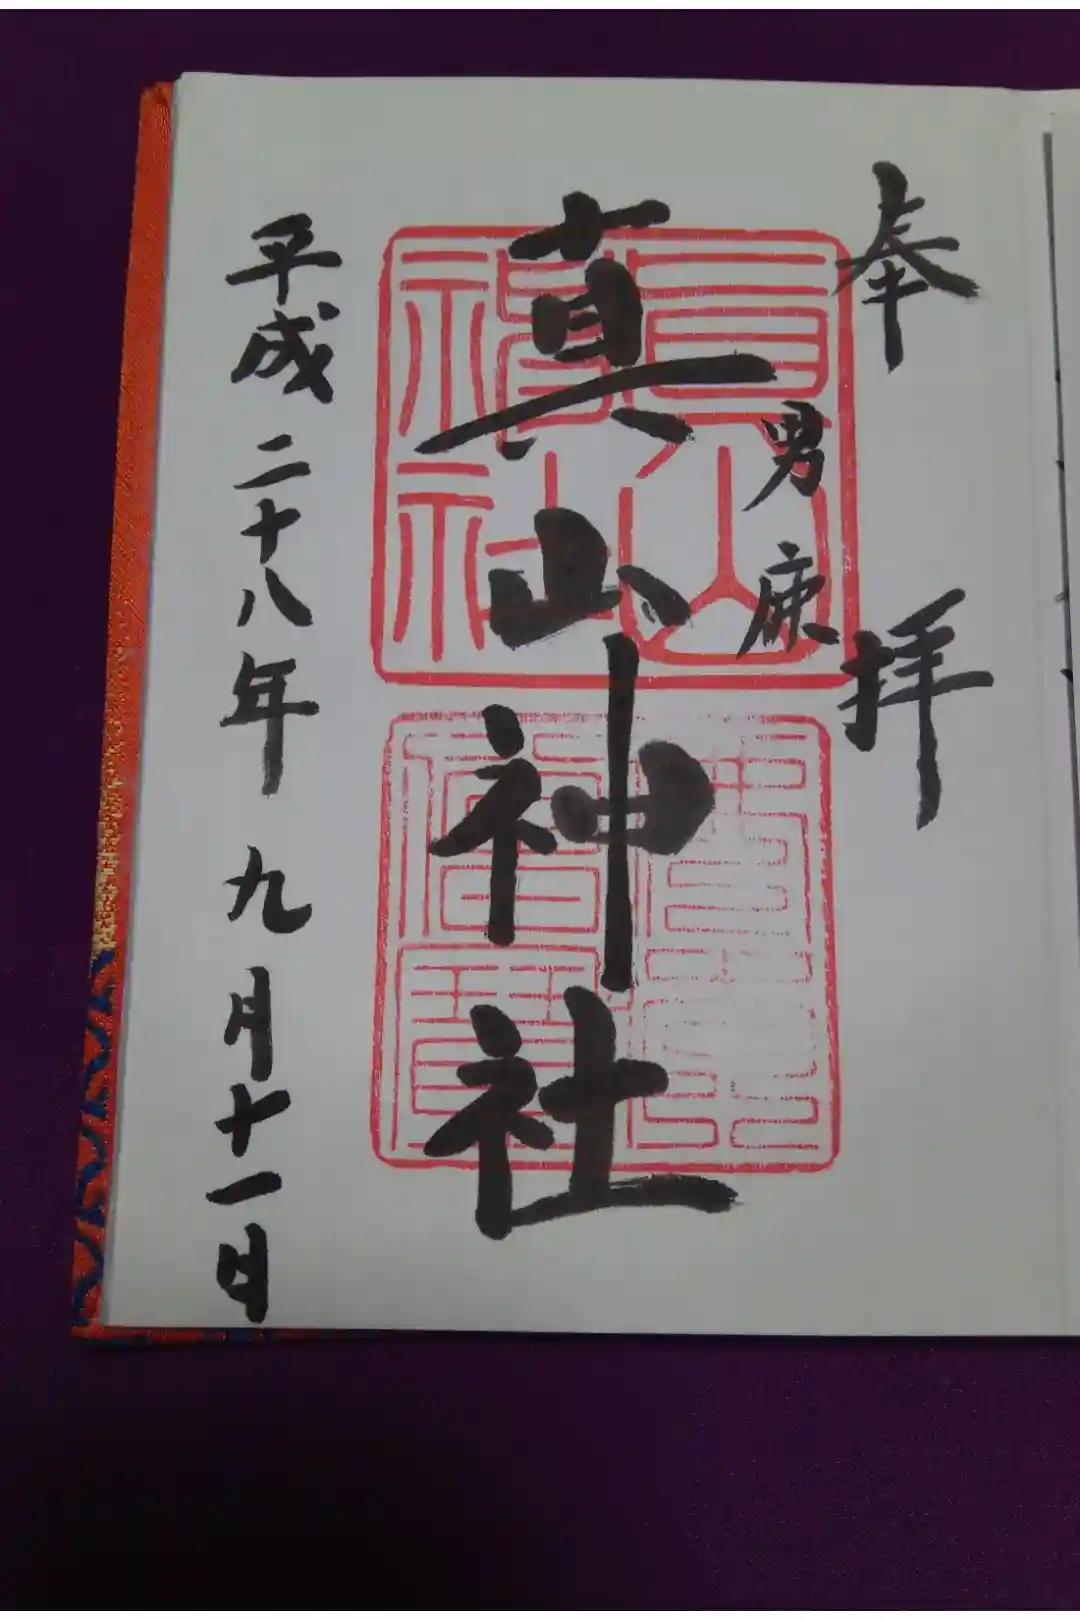 奉拝
男鹿
真山神社
平成二十八年九月十一日
真山神社